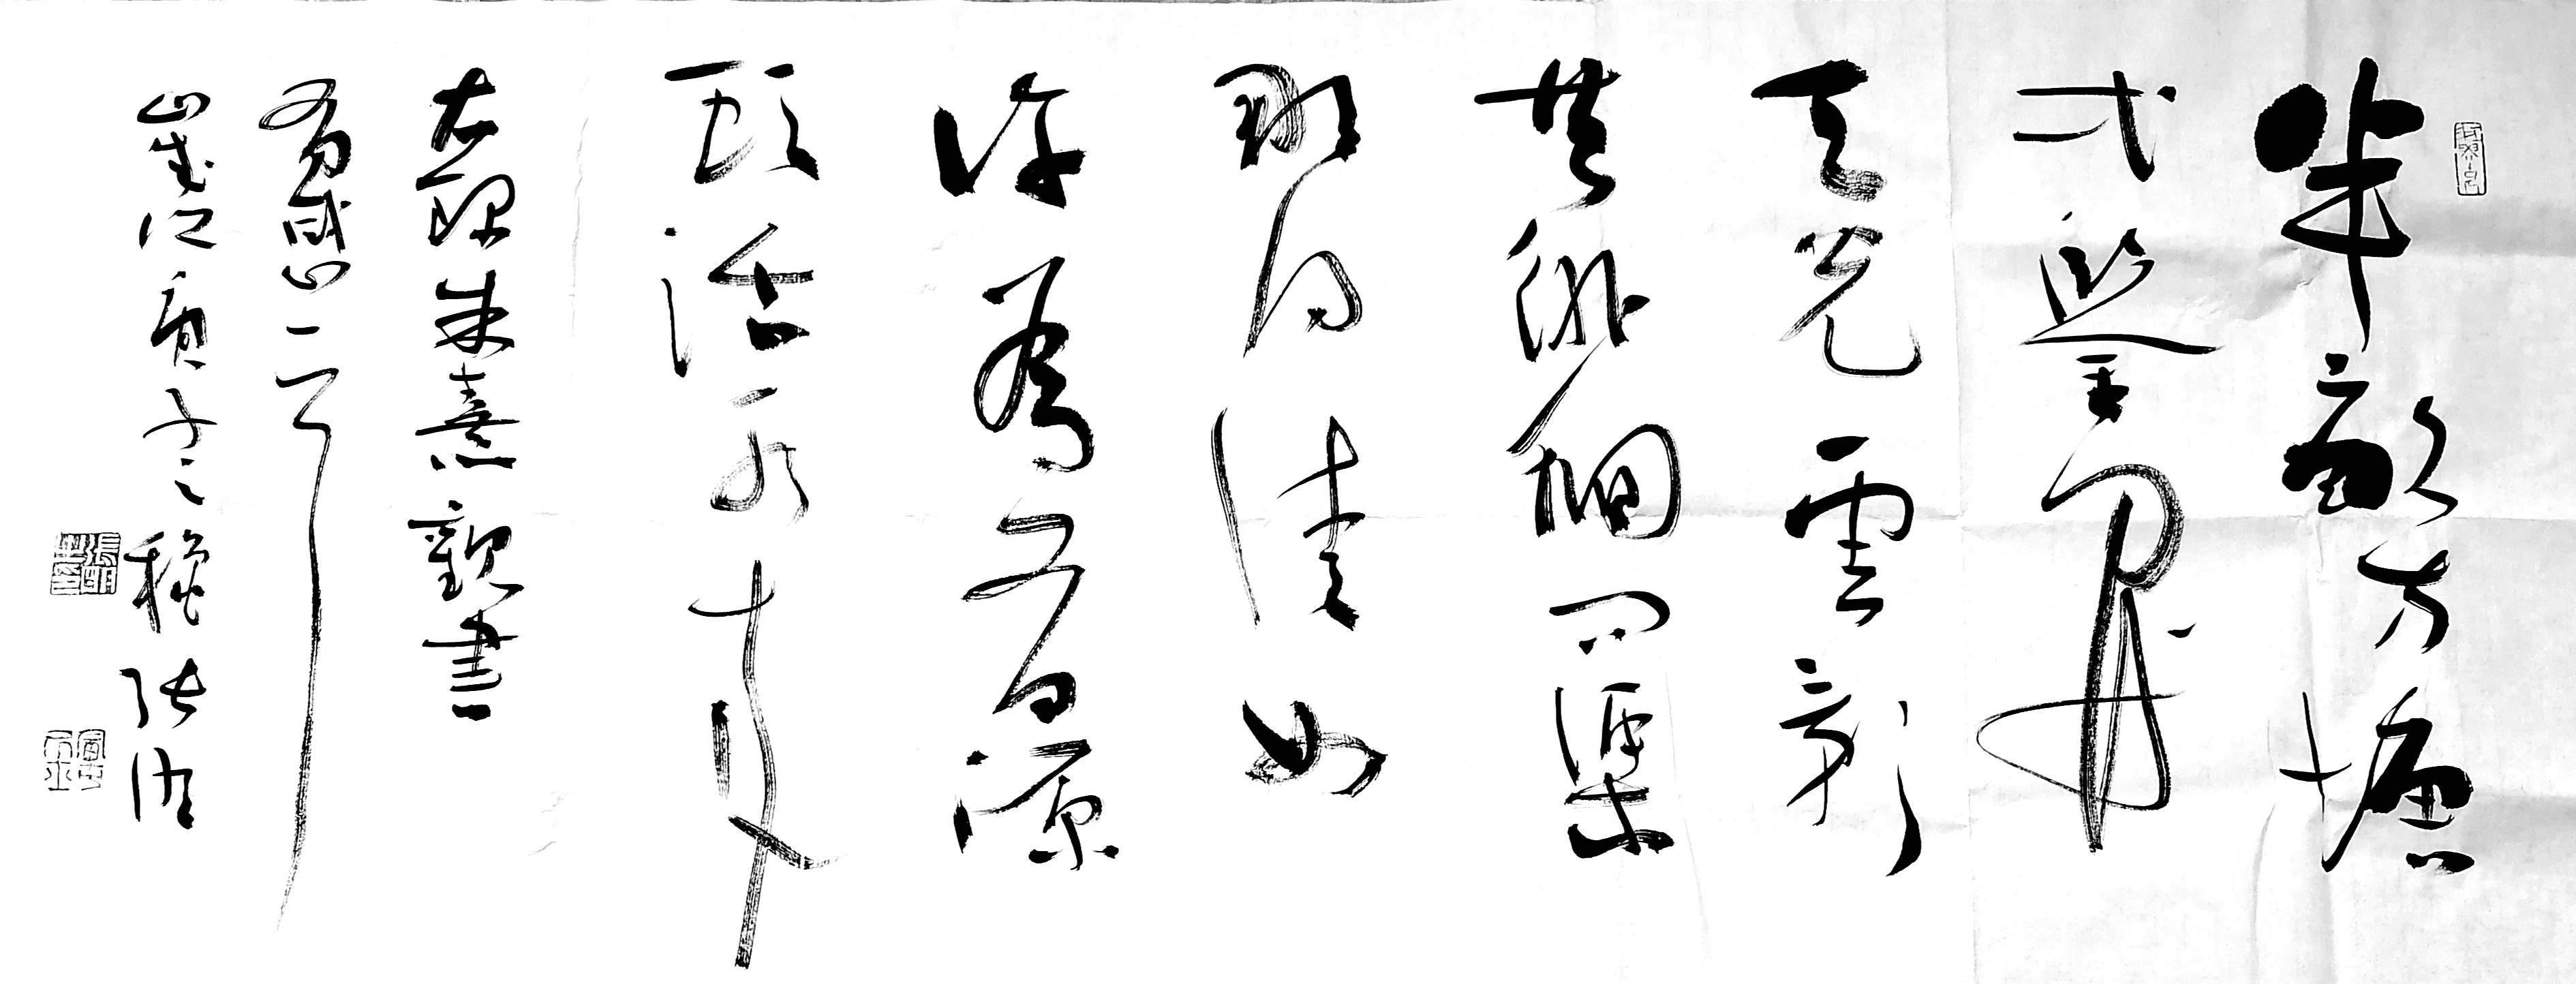 半畝方塘
弌鑒開
天光雲影
共徘徊問渠
那得清如
許為有源
頭活水來
右録朱熹觀書
有感一首
歲次庚子之穐張